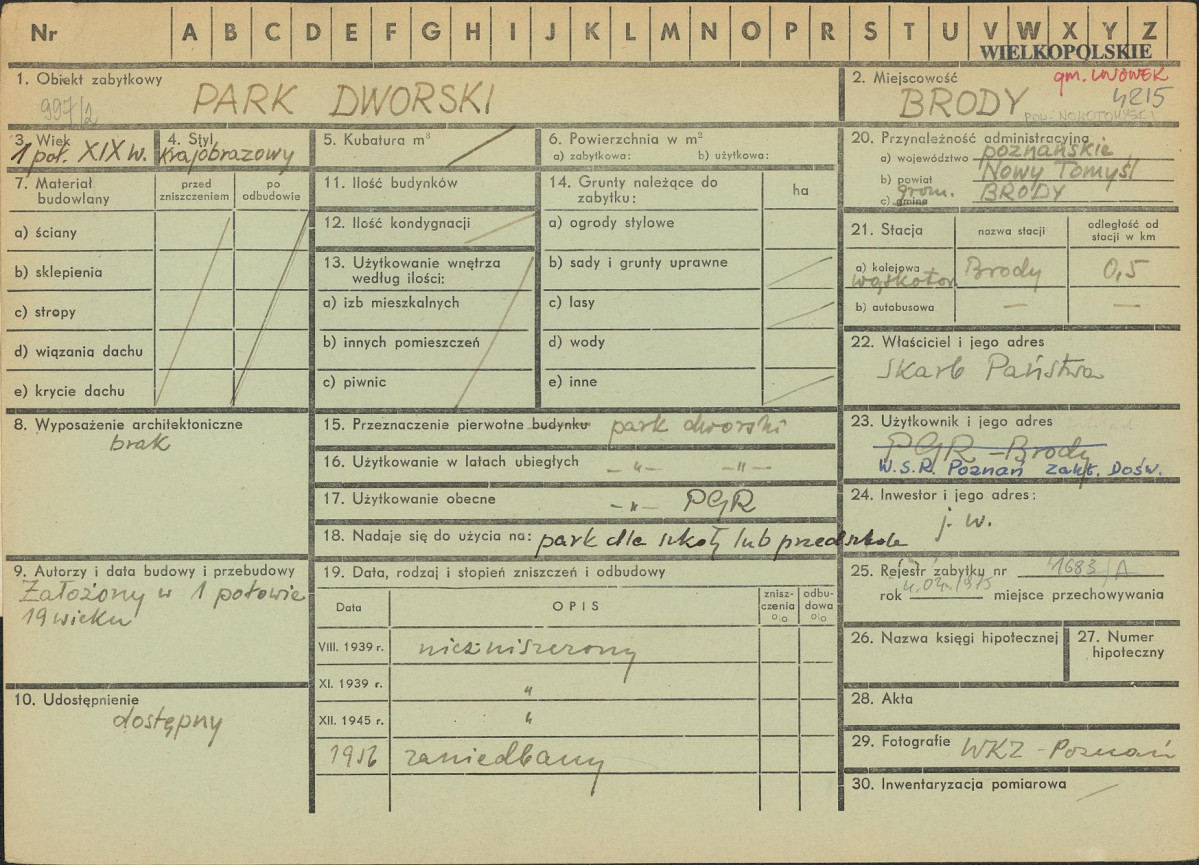 Nr A B C D E F G H I J K L M N O P R S T U V W X Y Z
WIELKOPOLSKIE
1. Obiekt zabytkowy
997/2
PARK DWORSKI
2. Miejscowość
gm. LWÓWEK
BRODY
4215
pow. NOWOTOMYSKI
3. Wiek
1 poł. XIX w.
4. Styl
krajobrazowy
5. Kubatura m³
6. Powierzchnia w m²
a) zabytkowa: b) użytkowa:
7. Materiał budowlany
przed zniszczeniem
po odbudowie
a) ściany
b) sklepienia
c) stropy
d) wiązania dachu
e) krycie dachu
8. Wyposażenie architektoniczne
brak
9. Autorzy i data budowy i przebudowy
Założony w 1 połowie
19 wieku
10. Udostępnienie
dostępny
11. Ilość budynków
12. Ilość kondygnacji
13. Użytkowanie wnętrza
według ilości:
a) izb mieszkalnych
b) innych pomieszczeń
c) piwnic
14. Grunty należące do
zabytku:
ha
a) ogrody stylowe
b) sady i grunty uprawne
c) lasy
d) wody
e) inne
15. Przeznaczenie pierwotne budynku park dworski
16. Użytkowanie w latach ubiegłych -„- -„-
17. Użytkowanie obecne -„- PGR
18. Nadaje się do użycia na: park dla szkoły lub przedszkola
19. Data, rodzaj i stopień zniszczeń i odbudowy
Data
OPIS
znisz-
czenia
%
odbu-
dowa
%
VIII. 1939 r. niezniszczony
XI. 1939 r. „
XII. 1945 r. „
1956 zaniedbany
20. Przynależność administracyjna
a) województwo poznańskie
b) powiat Nowy Tomyśl
c) gmina grom. BRODY
21. Stacja
nazwa stacji
odległość od
stacji w km
a) kolejowa
wąskotor. Brody 0,5
b) autobusowa — —
22. Właściciel i jego adres
Skarb Państwa
23. Użytkownik i jego adres
PGR - Brody
W.S.R. Poznań Zakł. Dośw.
24. Inwestor i jego adres:
j. w.
25. Rejestr zabytku nr 1683/A
rok miejsce przechowywania
26. Nazwa księgi hipotecznej
27. Numer
hipoteczny
28. Akta
29. Fotografie WKZ - Poznań
30. Inwentaryzacja pomiarowa